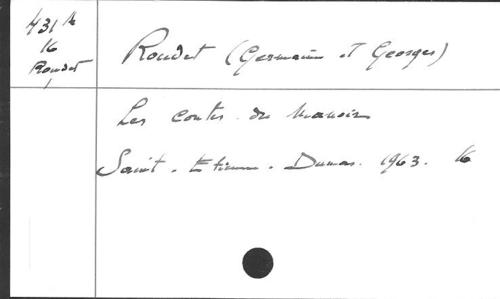 431 k
16
Roudet
Roudet (Germaine et Georges)
Les contes du Manoir
Saint-Etienne. Dumas. 1963. 16